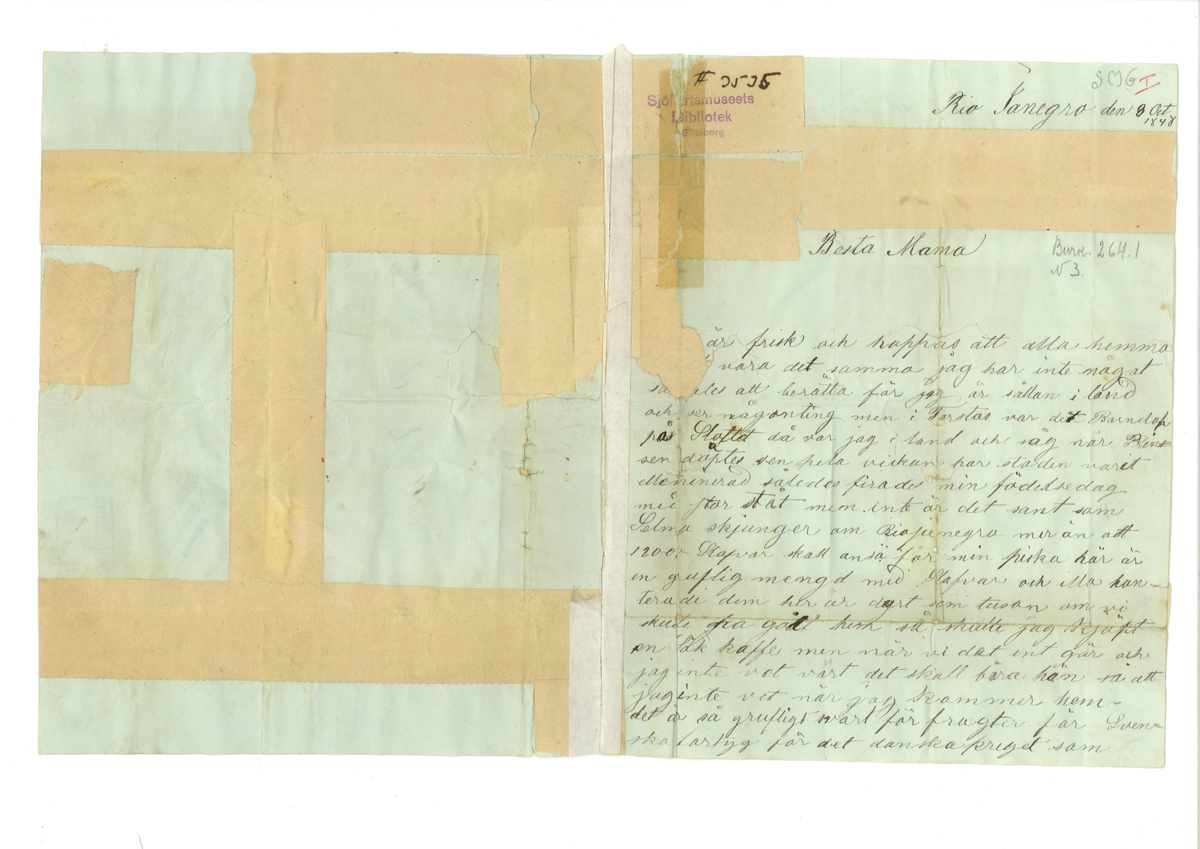 # 3535
Sjöfartsmuseets
Bibliotek
Göteborg
SMG I
Rio Janegro den 8 Oct.
1848
Besta Mama
Burk. 264:1
N 3.
är frisk och hoppas att alla hemma
vara det samma jag har inte något
att berätta för jag är sällan i land
och ser någonting men i var det Barndop
på Slottet då var jag i land och såg när Prins
sen döptes en hela veckan har staden varit
elleminerad således firades min födelsedag
med stor ståt men inte är det sant som
Selma skjunger om Riojanegro mer än att
1200 Slafvar skall ansä för min piska här är
en gruflig mengd med Slafvar och illa han-
tera di dem her är dyrt som tusan om vi
skulle fra gått hem så skulle jag kjöpt
en säk kaffe men när vi det int gär och
jag inte vet vart det skall bärse hän så att
jag inte vet när jag kommer hem-
det är så grufligt svårt för fragter för Sven-
ska fartyg för det danska kriget som